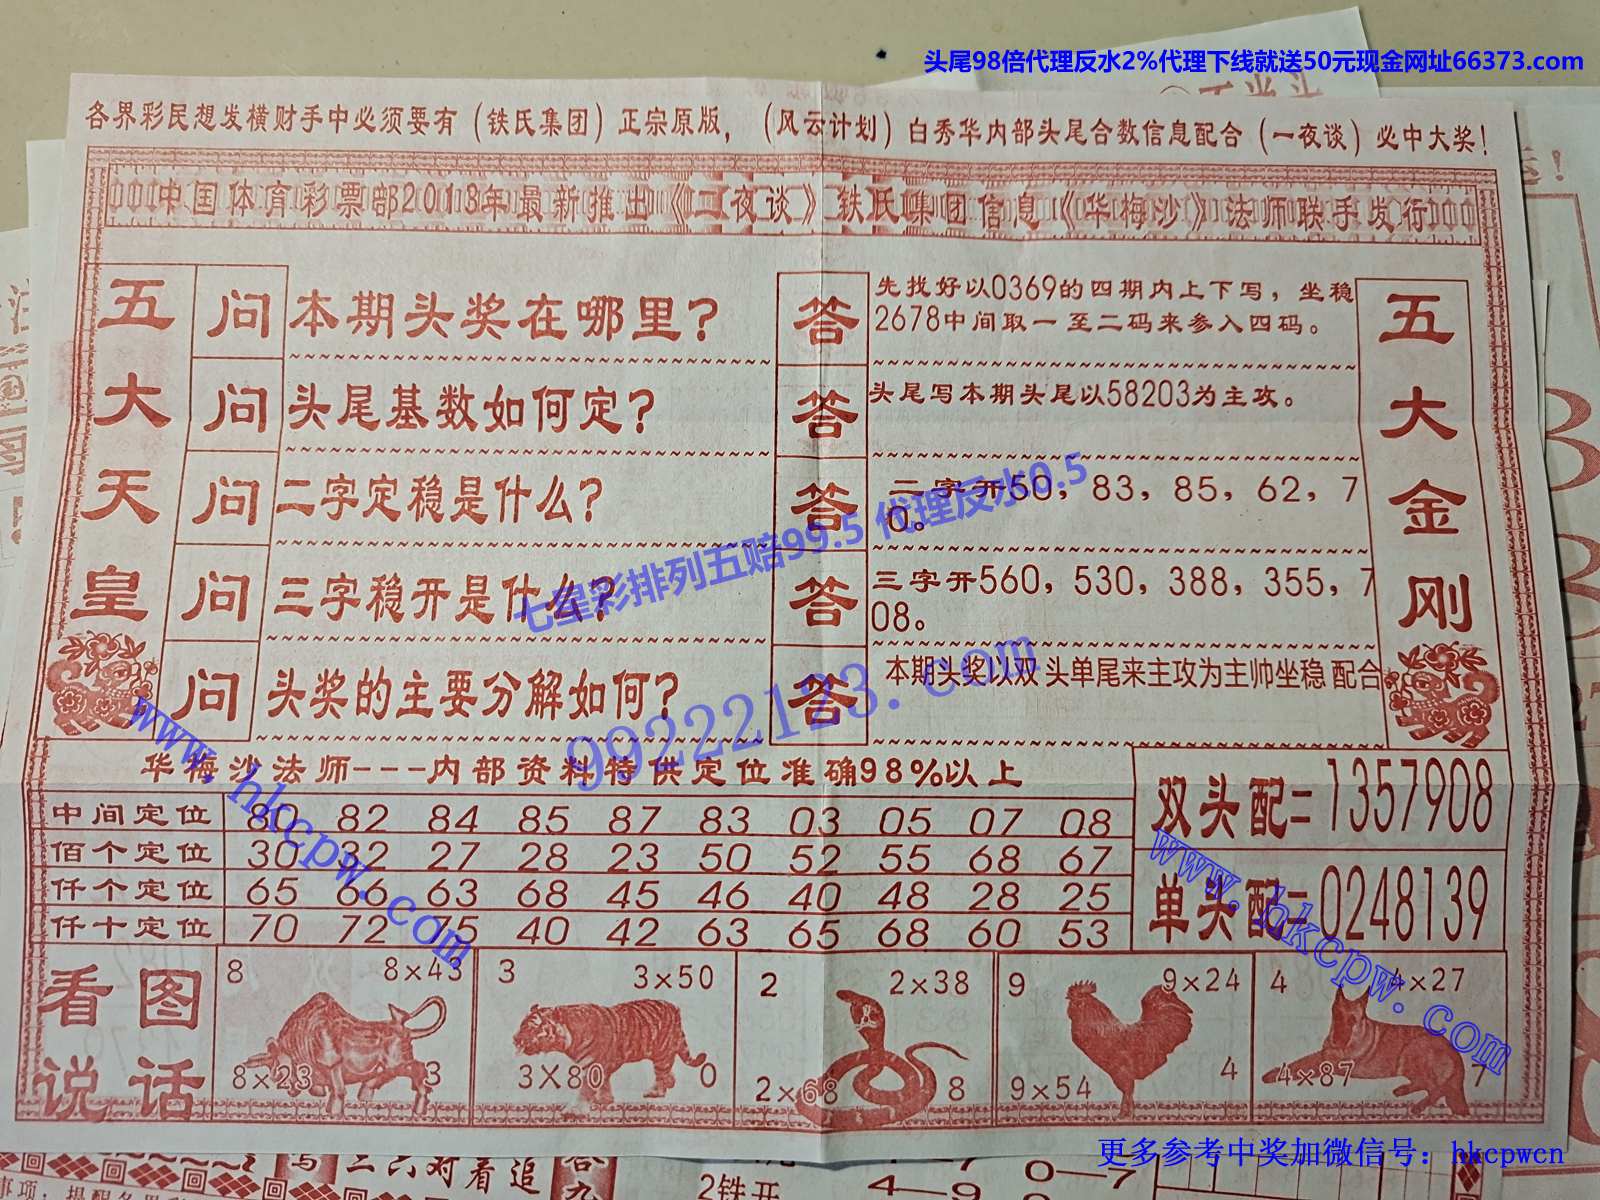 头尾98倍代理反水2%代理下线就送50元现金网址66373.com
各界彩民想发横财手中必须要有（铁氏集团）正宗原版，（风云计划）白秀华内部头尾合数信息配合（一夜谈）必中大奖！
中国体育彩票部2013年最新推出《一夜谈》铁氏集团信息《华梅沙》法师联手发行
五大天皇
问 本期头奖在哪里？
答 先找好以0369的四期内上下写，坐稳
2678中间取一至二码来参入四码。
问 头尾基数如何定？
答 头尾写本期头尾以58203为主攻。
问 二字定稳是什么？
答 二字开50，83，85，62，7
0。
问 三字稳开是什么？
答 三字开560，530，388，355，7
08。
问 头奖的主要分解如何？
答 本期头奖以双 头单尾来主攻为主帅坐稳 配合
五大金刚
七星彩排列五赔99.5 代理反水0.5
99222123.com
www.hkcpw.com
华梅沙法师---内部资料特供定位准确98%以上
中间定位 80 82 84 85 87 83 03 05 07 08
佰个定位 30 32 27 28 23 50 52 55 68 67
仟个定位 65 66 63 68 45 46 40 48 28 25
仟十定位 70 72 75 40 42 63 65 68 60 53
双头配=1357908
单头配=0248139
www.hkcpw.com
看图
说话
8 8×43
8×23 3
3 3×50
3X80 0
2 2×38
2×68 8
9 9×24
9×54 4
4 4×27
4×87 7
更多参考中奖加微信号：hkcpwcn
二六对看追
2铁开
4—9
0—7